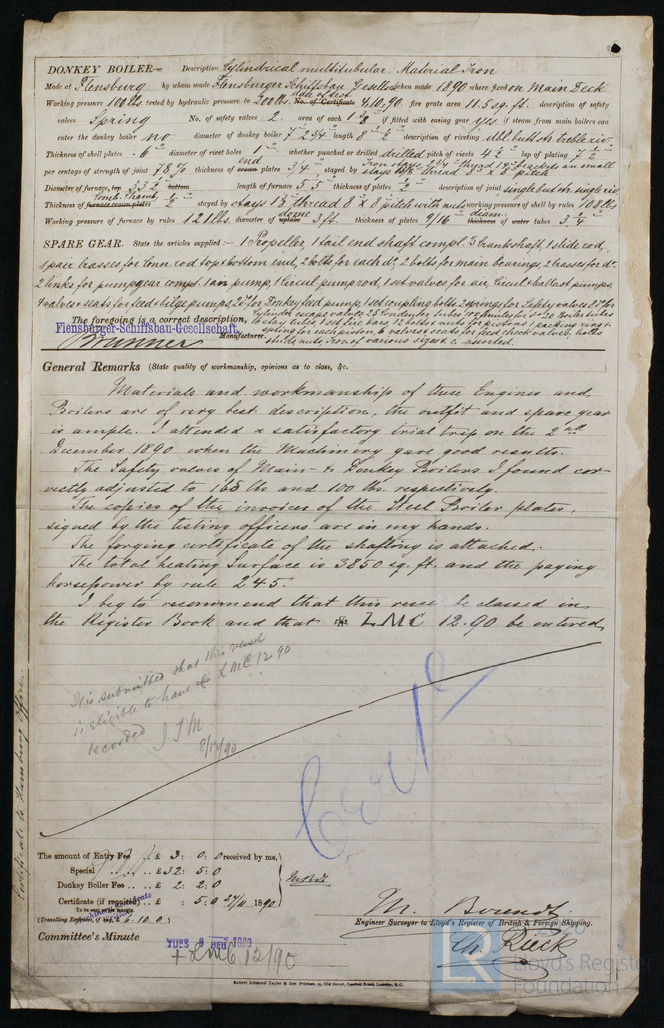 DONKEY BOILER— Description Cylindrical multitubular. Material Iron
Made at Flensburg by whom made Flensburger Schiffsbau Gesellsch. when made 1890 where fixed on Main Deck
date of test
Working pressure 100 lbs. tested by hydraulic pressure to 200 lbs. No. of Certificate 4,10,90. fire grate area 11.5 sq. ft. description of safety
valves Spring No. of safety valves 2. area of each if fitted with easing gear yes if steam from main boilers can
enter the donkey boiler no. diameter of donkey boiler length description of riveting dbl. butt str. treble riv.
Thickness of shell plates .6" diameter of rivet holes 1" whether punched or drilled drilled pitch of rivets 4 1/2" lap of plating 7 1/2"
per centage of strength of joint 78% thickness of crown end plates 3/4" stayed by
Diameter of furnace, top bottom length of furnace 5' 5" thickness of plates 1/2" description of joint single butt str. single riv.
Thickness of furnace crown plates Comb. Chamb. 1/2" stayed by stays thread 8" x 8" pitch with nuts working pressure of shell by rules 108 lbs
Working pressure of furnace by rules 121 lbs. diameter of uptake dome 3 ft. thickness of plates 9/16" thickness diam. of water tubes 3 1/4"
SPARE GEAR. State the articles supplied:— 1 Propeller, 1 tail end shaft compl. 1/3 crankshaft, 1 slide rod,
1 pair brasses for Conn. rod top & bottom end, 2 bolts for each do. 2 bolts for main bearings, 2 brasses for do.
2 links for pump gear compl. 1 air pump 1 Circul. pump rod, 1 set valves for air, Circul. & ballast pumps,
valves & seats for feed & bilge pumps, 2 do. for Donkey feed pump, 1 set coupling bolts 2 springs for Safety valves
Cylinder escape valves 25 Condenser tubes 100 ferrules for do. 20 Boiler tubes
stay tubes, 1 set fire bars, 12 bolts & nuts for pistons 1 packing ring &
spring for each piston, 6 valves & seats for feed check valves, bolts
studs nuts, Iron of various sizes &c. assorted.
The foregoing is a correct description,
Flensburger-Schiffsbau-Gesellschaft.
Manufacturer.
General Remarks (State quality of workmanship, opinions as to class, &c.
Materials and workmanship of these Engines and
Boilers are of very best description, the outfit and spare gear
is ample. I attended a satisfactory trial trip on the 2nd
December 1890 when the Machinery gave good results.
The Safety valves of Main- & Donkey Boilers I found cor-
rectly adjusted to 165 lbs and 100 lbs. respectively.
The copies of the invoices of the Steel Boiler plates,
signed by the testing officers are in my hands.
The forging certificate of the shafting is attached.
The total heating Surface is 3850 sq. ft. and the paying
horsepower by rule 245.
I beg to recommend that this vessel be classed in
the Register Book and that ✠ LMC 12.90 be entered.
It is submitted that this vessel
is eligible to have ✠ LMC 12.90
recorded
8/12/90
Cert
Certificate to Hamburg Office.
The amount of Entry Fee £ 3: 0: 0 received by me,
Special £ 32: 5: 0
Donkey Boiler Fee £ 2: 2: 0
Certificate (if required) £ : 5: 0 27/11 1890.
To be sent as per margin.
(Travelling Expenses, if any, £ 6. 10. 0)
Engineer Surveyor to Lloyd's Register of British & Foreign Shipping.
Committee's Minute
TUES 9 DEC 1890
+ LMC 12/90
Robert Edmund Taylor & Son Printers, 19, Old Street, Goswell Road, London, E.C.
LR
Lloyd's Register
Foundation